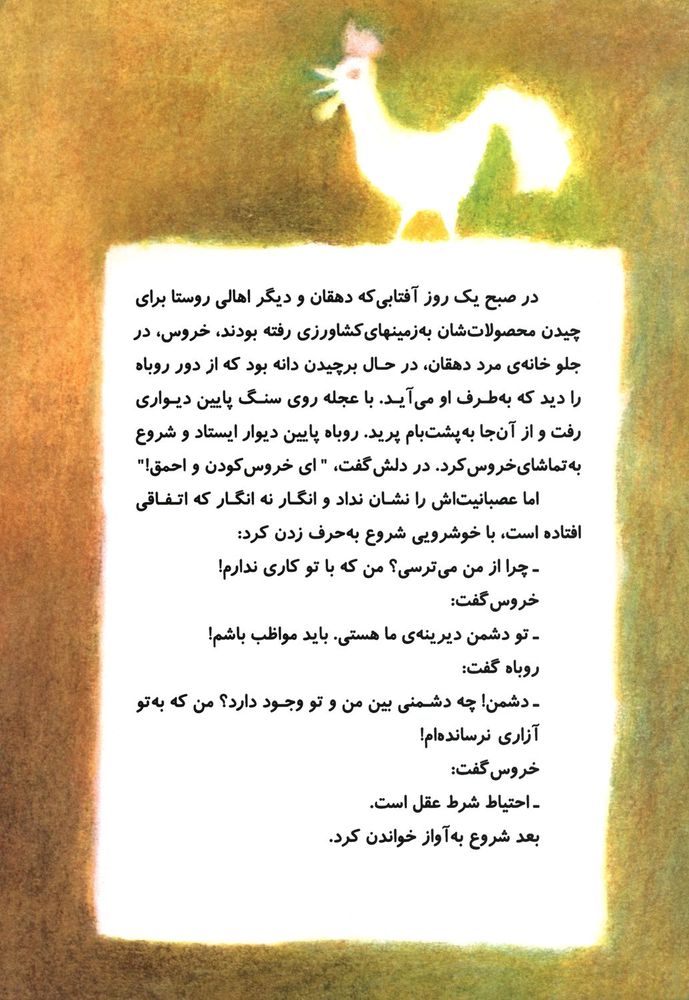 در صبح یک روز آفتابی‌که دهقان و دیگر اهالی روستا برای
چیدن محصولات‌شان به‌زمینهای‌کشاورزی رفته بودند، خروس، در
جلو خانه‌ی مرد دهقان، در حال برچیدن دانه بود که از دور روباه
را دید که به‌طرف او می‌آید. با عجله روی سنگ پایین دیواری
رفت و از آن‌جا به‌پشت‌بام پرید. روباه پایین دیوار ایستاد و شروع
به‌تماشای‌خروس‌کرد. در دلش‌گفت، " ای خروس‌کودن و احمق!"
اما عصبانیت‌اش را نشان نداد و انگار نه انگار که اتفاقی
افتاده است، با خوشرویی شروع به‌حرف زدن کرد:
ـ چرا از من می‌ترسی؟ من که با تو کاری ندارم!
خروس‌گفت:
ـ تو دشمن دیرینه‌ی ما هستی. باید مواظب باشم!
روباه گفت:
ـ دشمن! چه دشمنی بین من و تو وجود دارد؟ من که به‌تو
آزاری نرسانده‌ام!
خروس‌گفت:
ـ احتیاط شرط عقل است.
بعد شروع به‌آواز خواندن کرد.